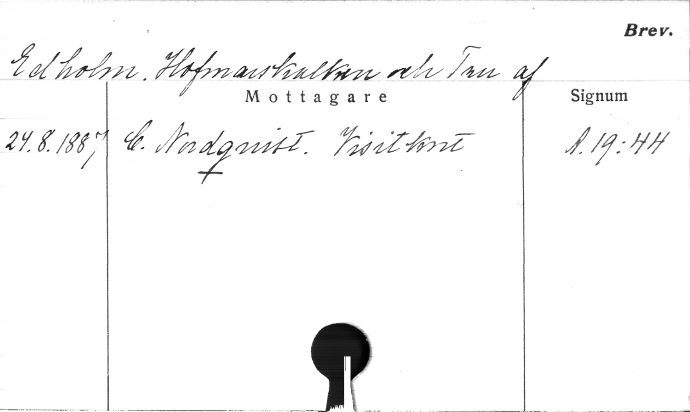 Brev.
Edholm. Hofmarskalken och Fru af
Mottagare Signum
24.8.1887 C. Nordqvist. Visitkort A.19:44